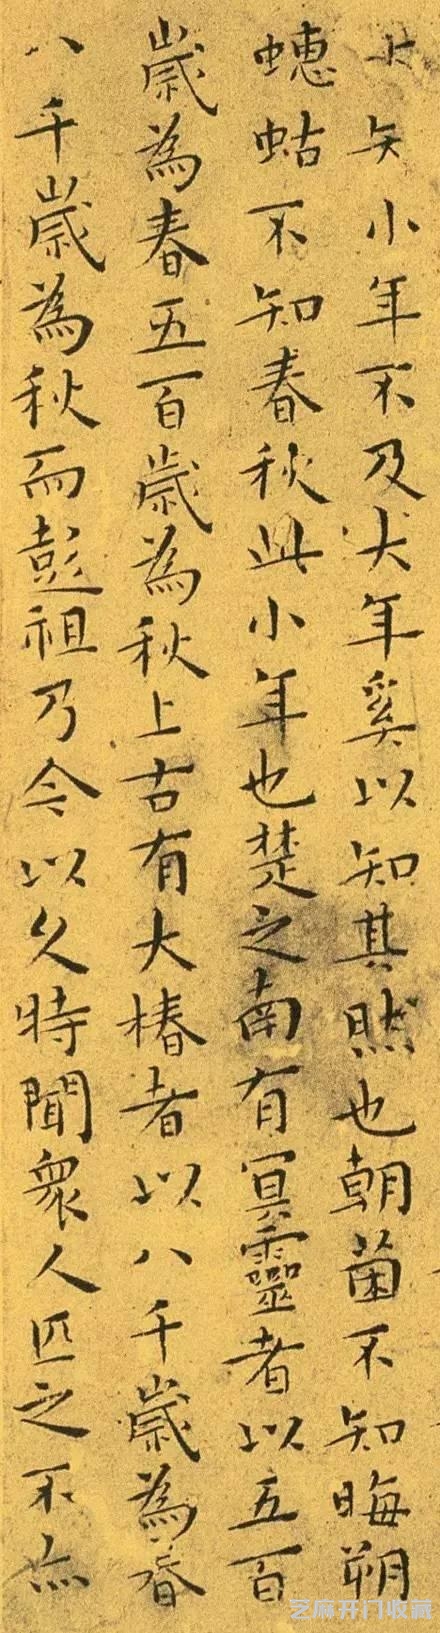 小年不及大年奚以知其然也朝菌不知晦朔
蟪蛄不知春秋此小年也楚之南有冥靈者以五百
歲為春五百歲為秋上古有大椿者以八千歲為春
八千歲為秋而彭祖乃今以久特聞衆人匹之不亦
芝麻开门收藏